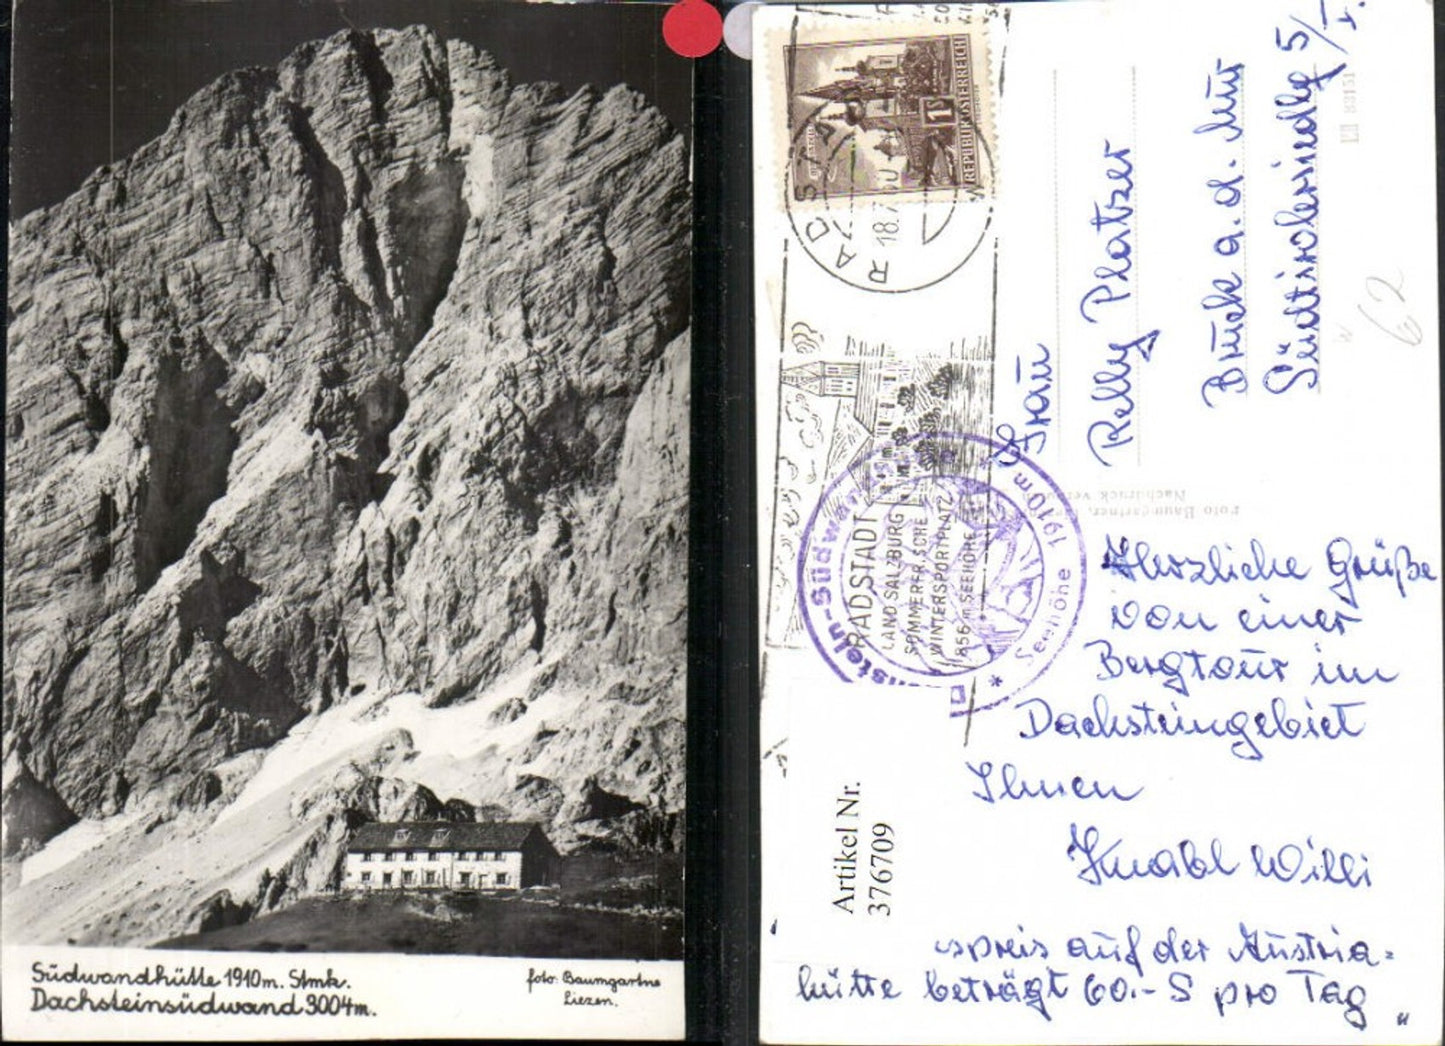 Südwandhütte 1910m. Stmk.
Dachsteinsüdwand 3004m.
foto: Baumgartne
Liezen.
REPUBLIK ÖSTERREICH
1 S
RADSTADT
18.7
RADSTADT
LAND SALZBURG
SOMMERFRISCHE
WINTERSPORTPLATZ
856 m SEEHÖHE
Südwand
Seehöhe 1910 m
Frau
Relly Platzer
Bruck a. d. Mur
Südtirolersiedlg 5/I.
83151
62
Foto Baumgartner,
Nachdruck verboten
Herzliche Grüße
von einer
Bergtour im
Dachsteingebiet
Ihnen
Knabl Willi
spreis auf der Austria=
hütte beträgt 60.- S pro Tag "
Artikel Nr.
376709